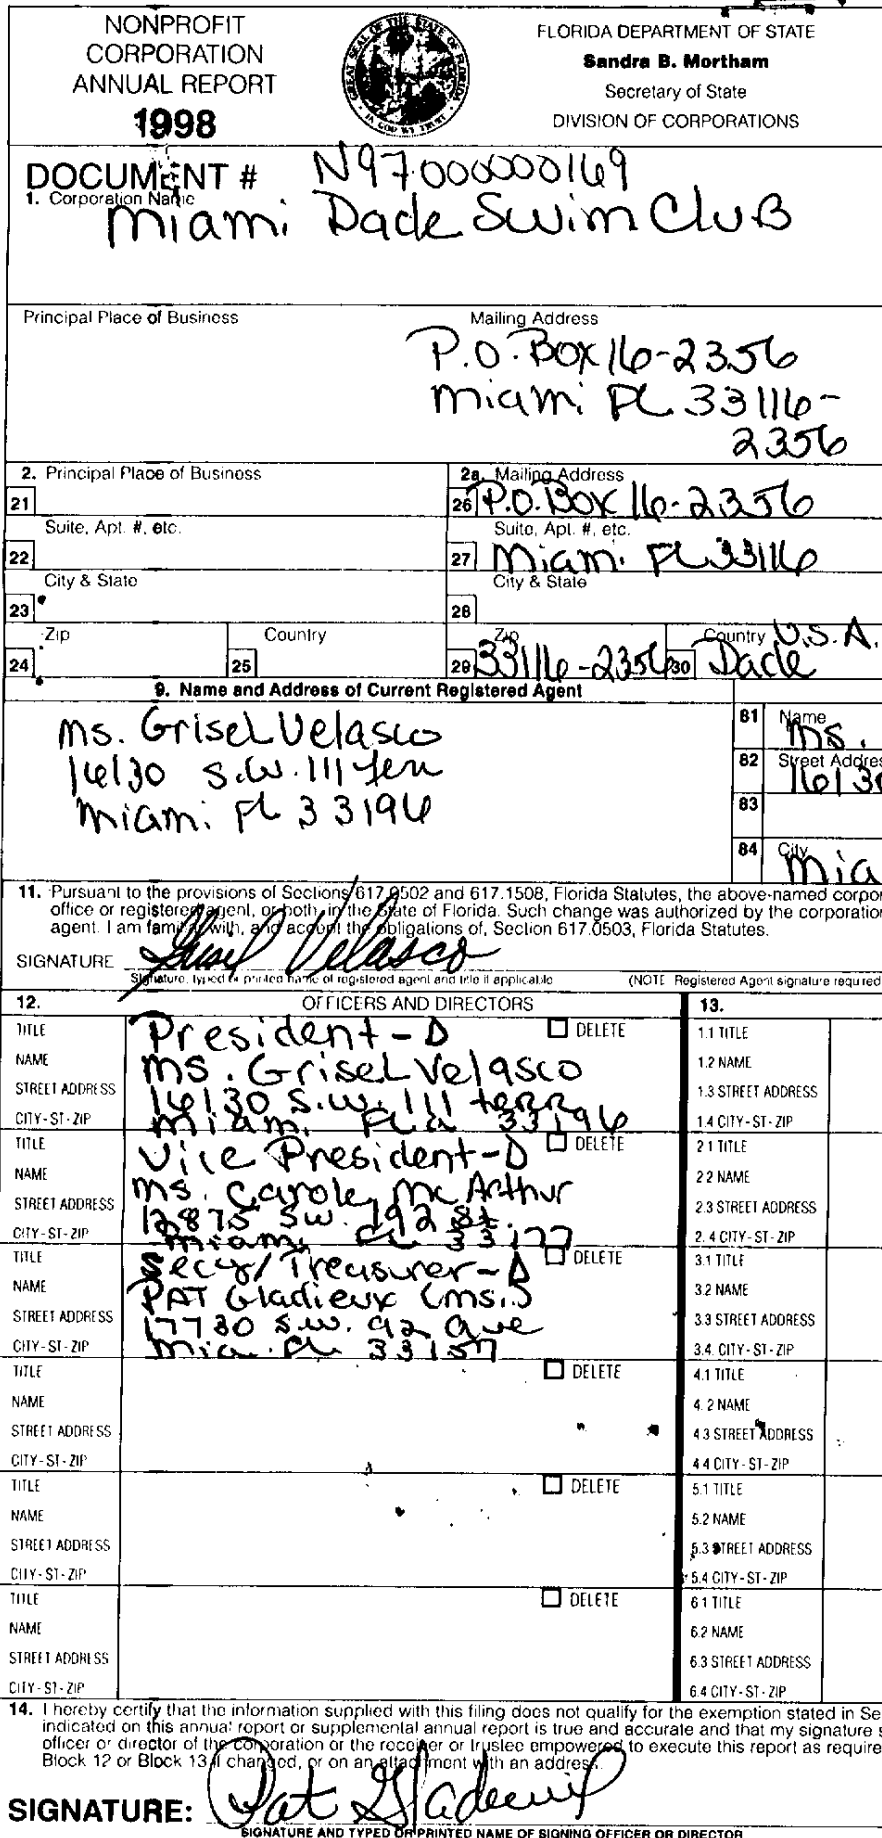 NONPROFIT
CORPORATION
ANNUAL REPORT
1998
GREAT SEAL OF THE STATE OF FLORIDA
IN GOD WE TRUST
FLORIDA DEPARTMENT OF STATE
Sandra B. Mortham
Secretary of State
DIVISION OF CORPORATIONS
DOCUMENT # N97000000169
1. Corporation Name
Miami Dade Swim Club
Principal Place of Business
Mailing Address
P.O. Box 16-2356
Miami FL 33116-
2356
2. Principal Place of Business
2a. Mailing Address
21
26 P.O. Box 16-2356
Suite, Apt. #, etc.
Suite, Apt. #, etc.
22
27 Miami FL 33116
City & State
City & State
23
28
Zip
Country
Zip
Country U.S.A.
24
25
29 33116-2356
30 Dade
9. Name and Address of Current Registered Agent
Ms. Grisel Velasco
16130 S.W. 111 Terr
Miami FL 33196
81 Name
Ms.
82 Street Addres
16130
83
84 City
Mia
11. Pursuant to the provisions of Sections 617.0502 and 617.1508, Florida Statutes, the above-named corpor
office or registered agent, or both, in the State of Florida. Such change was authorized by the corporation
agent. I am familiar with, and accept the obligations of, Section 617.0503, Florida Statutes.
SIGNATURE Grisel Velasco
Signature, typed or printed name of registered agent and title if applicable
(NOTE Registered Agent signature required
12. OFFICERS AND DIRECTORS
13.
TITLE President-D DELETE
NAME Ms. Grisel Velasco
STREET ADDRESS 16130 S.W. 111 terr
CITY-ST-ZIP Miami Fla 33196
1.1 TITLE
1.2 NAME
1.3 STREET ADDRESS
1.4 CITY-ST-ZIP
TITLE Vice President-D DELETE
NAME Ms. Carole McArthur
STREET ADDRESS 12875 SW. 192 St.
CITY-ST-ZIP Miami FL 33177
2.1 TITLE
2.2 NAME
2.3 STREET ADDRESS
2.4 CITY-ST-ZIP
TITLE Secy/Treasurer-D DELETE
NAME PAT Gladieux (ms.)
STREET ADDRESS 17730 S.W. 92 Ave
CITY-ST-ZIP Mia. FL 33157
3.1 TITLE
3.2 NAME
3.3 STREET ADDRESS
3.4. CITY-ST-ZIP
TITLE DELETE
NAME
STREET ADDRESS
CITY-ST-ZIP
4.1 TITLE
4.2 NAME
4.3 STREET ADDRESS
4.4 CITY-ST-ZIP
TITLE DELETE
NAME
STREET ADDRESS
CITY-ST-ZIP
5.1 TITLE
5.2 NAME
5.3 STREET ADDRESS
5.4 CITY-ST-ZIP
TITLE DELETE
NAME
STREET ADDRESS
CITY-ST-ZIP
6.1 TITLE
6.2 NAME
6.3 STREET ADDRESS
6.4 CITY-ST-ZIP
14. I hereby certify that the information supplied with this filing does not qualify for the exemption stated in Se
indicated on this annual report or supplemental annual report is true and accurate and that my signature s
officer or director of the corporation or the receiver or trustee empowered to execute this report as require
Block 12 or Block 13 if changed, or on an attachment with an address.
SIGNATURE: Pat Gladieux
SIGNATURE AND TYPED OR PRINTED NAME OF SIGNING OFFICER OR DIRECTOR